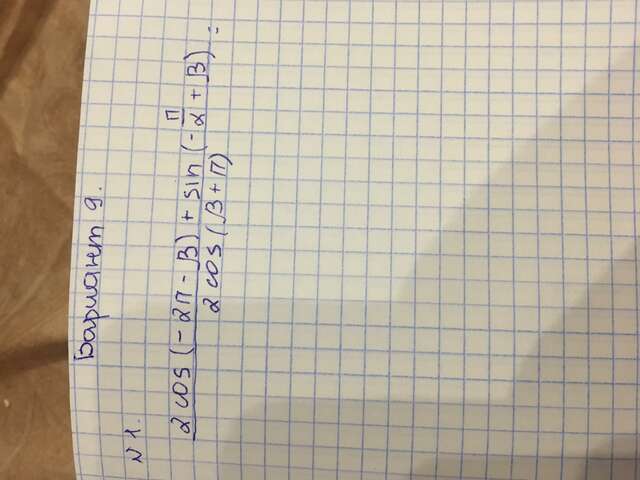 Вариант 9.
N 1.
2 cos (-2π - β) + sin (-π/2 + β) =
2 cos (β + π)